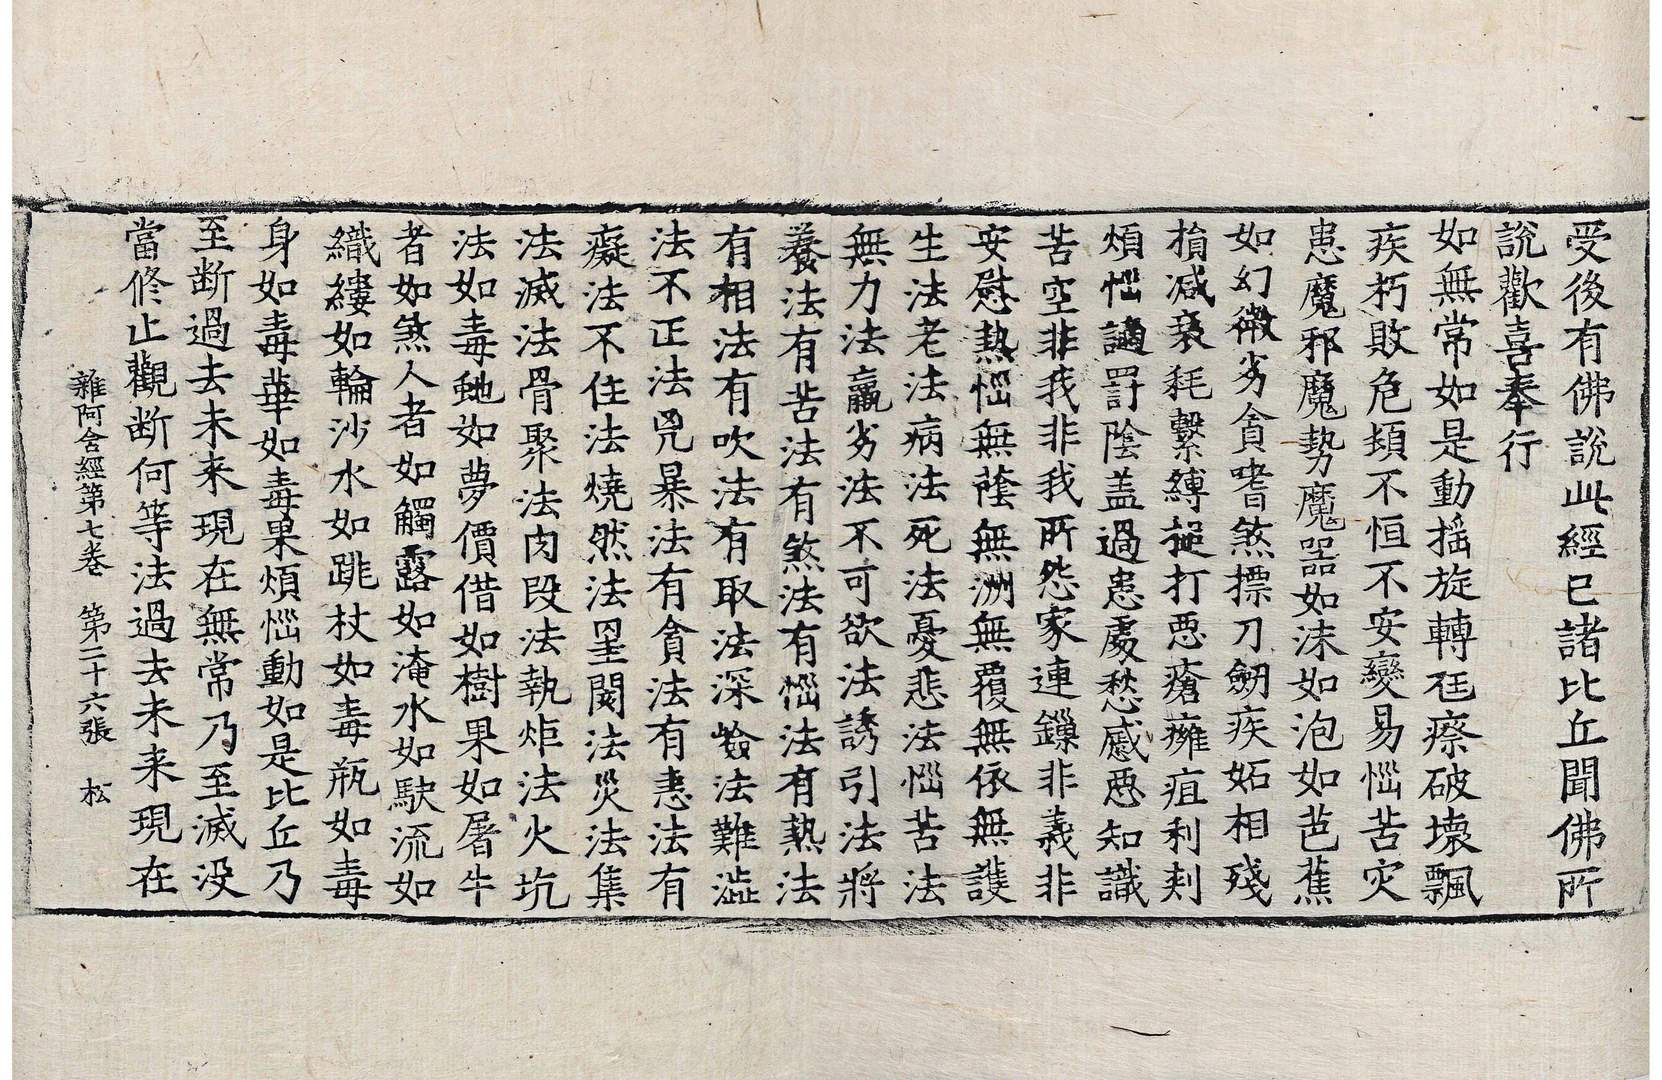 受後有佛說此經已諸比丘聞佛所
說歡喜奉行
如無常如是動搖旋轉尫瘵破壞飄
疾朽敗危頓不恒不安變易惱苦灾
患魔邪魔勢魔器如沫如泡如芭蕉
如幻微劣貪嗜煞摽刀劒疾妬相殘
損减衰秏繫縛搥打惡瘡癰疽利刾
煩惱讁罰陰盖過患處愁慼惡知識
苦空非我非我所怨家連鏁非義非
安慰熱惱無蔭無洲無覆無依無護
生法老法病法死法憂悲法惱苦法
無力法羸劣法不可欲法誘引法將
養法有苦法有煞法有惱法有熱法
有相法有吹法有取法深嶮法難澁
法不正法㒵暴法有貪法有恚法有
癡法不住法燒然法罣閡法災法集
法滅法骨聚法肉段法執炬法火坑
法如毒虵如夢價借如樹果如屠牛
者如煞人者如觸露如淹水如駛流如
織縷如輪沙水如跳杖如毒瓶如毒
身如毒華如毒果煩惱動如是比丘乃
至断過去未来現在無常乃至滅没
當修止觀断何等法過去未来現在
雜阿含經第七卷　第二十六張　松